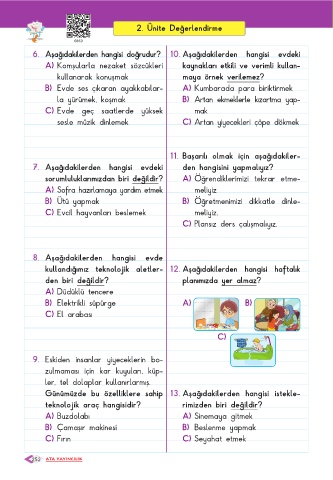 2. Ünite Değerlendirme
6. Aşağıdakilerden hangisi doğrudur?
A) Komşularla nezaket sözcükleri
kullanarak konuşmak
B) Evde ses çıkaran ayakkabılar-
la yürümek, koşmak
C) Evde geç saatlerde yüksek
sesle müzik dinlemek
7. Aşağıdakilerden hangisi evdeki
sorumluluklarımızdan biri değildir?
A) Sofra hazırlamaya yardım etmek
B) Ütü yapmak
C) Evcil hayvanları beslemek
8. Aşağıdakilerden hangisi evde
kullandığımız teknolojik aletler-
den biri değildir?
A) Düdüklü tencere
B) Elektrikli süpürge
C) El arabası
9. Eskiden insanlar yiyeceklerin bo-
zulmaması için kar kuyuları, küp-
ler, tel dolaplar kullanırlarmış.
Günümüzde bu özelliklere sahip
teknolojik araç hangisidir?
A) Buzdolabı
B) Çamaşır makinesi
C) Fırın
10. Aşağıdakilerden hangisi evdeki
kaynakları etkili ve verimli kullan-
maya örnek verilemez?
A) Kumbarada para biriktirmek
B) Artan ekmeklerle kızartma yap-
mak
C) Artan yiyecekleri çöpe dökmek
11. Başarılı olmak için aşağıdakiler-
den hangisini yapmalıyız?
A) Öğrendiklerimizi tekrar etme-
meliyiz.
B) Öğretmenimizi dikkatle dinle-
meliyiz.
C) Plansız ders çalışmalıyız.
12. Aşağıdakilerden hangisi haftalık
planımızda yer almaz?
A)
B)
C)
13. Aşağıdakilerden hangisi istekle-
rimizden biri değildir?
A) Sinemaya gitmek
B) Beslenme yapmak
C) Seyahat etmek
52 ATA YAYINCILIK